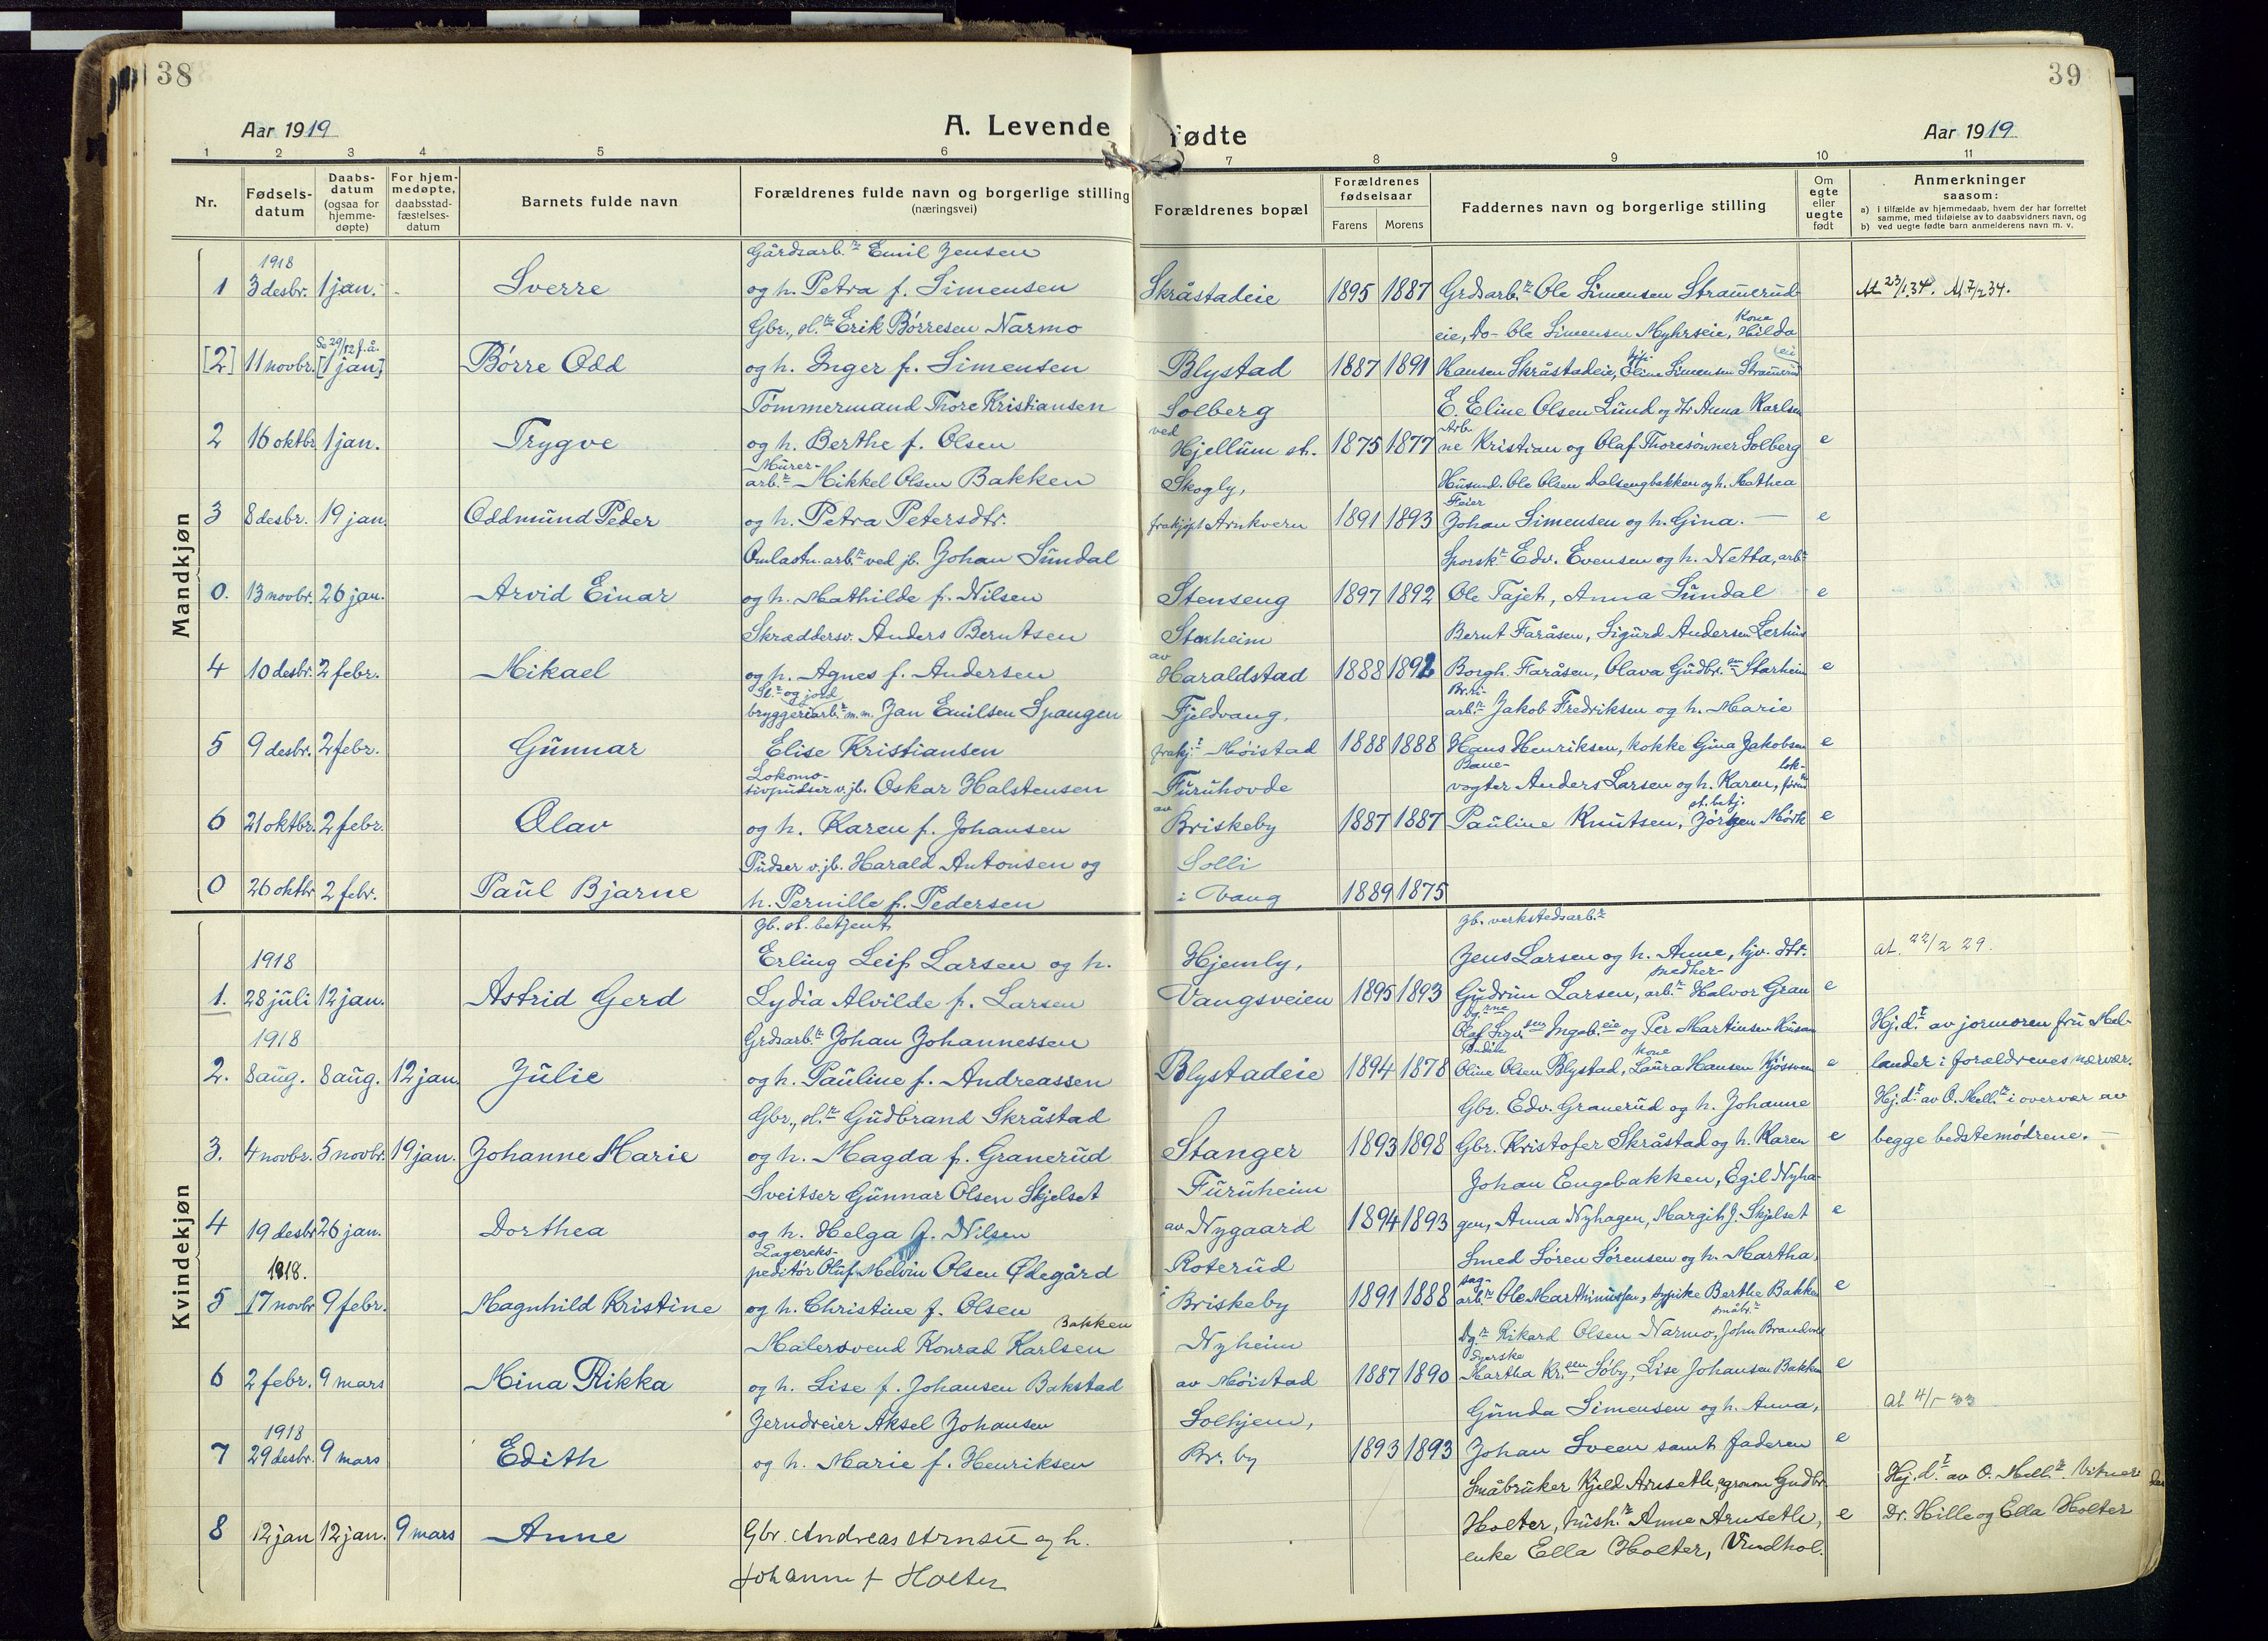 38
Aar 1919
A. Levende
1 2 3 4 5 6
Nr.
Fødsels-
datum
Daabs-
datum
(ogsaa for
hjemme-
døpte)
For hjem-
medøpte,
daabsstad-
fæstelses-
datum
Barnets fulde navn
Forældrenes fulde navn og borgerlige stilling
(næringsvei)
Mandkjøn
Gårdsarb.r Emil Jensen
1918
1 3 desbr. 1 jan. - Sverre og h. Petra f. Simensen
Gbr., sl.r Erik Børresen Narmo
Se 29/12 f.å.
[2] 11 novbr. [1 jan] Børre Odd og h. Inger f. Simensen
Tømmermand Thore Kristiansen
2 16 oktbr. 1 jan. Trygve og h. Berthe f. Olsen
Murer-
arb.r Mikkel Olsen Bakken
3 8 desbr. 19 jan. Oddmund Peder og h. Petra Petersdtr.
Omlastn. arb.r ved jb. Johan Sundal
0. 13 novbr. 26 jan. Arvid Einar og h. Mathilde f. Nilsen
Skræddersv. Anders Berntsen
4 10 desbr. 2 febr. Mikael og h. Agnes f. Andersen
bryggeriarb.r m.m. Jan Emilsen Spangen
5 9 desbr. 2 febr. Gunnar Elise Kristiansen
Lokomo-
tivpudser v. jb. Oskar Halstensen
6 21 oktbr. 2 febr. Olav og h. Karen f. Johansen
Pudser v. jb. Harald Antonsen og
0 26 oktbr 2 febr. Paul Bjarne h. Pernille f. Pedersen
Kvindekjøn
Jb. st. betjent
1918 Erling Leif Larsen og h.
1. 28 juli 12 jan. Astrid Gerd Lydia Alvilde f. Larsen
1918 Grdsarb.r Johan Johannessen
2. 8 aug. 8 aug. 12 jan. Julie og h. Pauline f. Andreassen
Gbr., sl.r Gudbrand Skråstad
3. 4 novbr. 5 novbr. 19 jan. Johanne Marie og h. Magda f. Granerud
Sveitser Gunnar Olsen Skjelset
4 19 desbr 26 jan. Dorthea og h. Helga f. Nilsen
Lagereks-
1918. peditør Oluf Melvin Olsen Ødegård
5 17 novbr 9 febr. Magnhild Kristine og h. Christine f. Olsen
Bakken
Malersvend Konrad Karlsen
6 2 febr. 9 mars Mina Rikka og h. Lise f. Johansen Bakstad
1918 Jerndreier Aksel Johansen
7 29 desbr. 9 mars Edith og h. Marie f. Henriksen
8 12 jan 12 jan. 9 mars Anne Gbr. Andreas Arnset og h.
Johanne f Holter
39
fødte
Aar 1919
7 8 9 10 11
Forældrenes bopæl
Forældrenes
fødselsaar
Farens Morens
Faddernes navn og borgerlige stilling
Om
egte
eller
uegte
født
Anmerkninger
saasom:
a) i tilfælde av hjemmedaab, hvem der har forrettet
samme, med tilføielse av to daabsvidners navn, og
b) ved uegte fødte barn anmelderens navn m. v.
Skråstadeie 1895 1887 Grdsarb.r Ole Simensen Stramerud- At 23/1.34. At.7/2 34.
Kone
eie, Do- Ole Simensen Myhrseie, Hilda
Blystad 1887 1891 Hansen Skråstadeie, Eline Simensen
Solberg E. Eline Olsen Lund og Anna Karlsen
ved
Arb.
Hjellum st. 1875 1877 ne Kristian og Olaf Thoresønner Solberg e
Skogly, Husmd. Ole Olsen Dalsengbakken og h. Mathea
Feier
frakjøpt Arnkvern 1891 1893 Johan Simensen og h. Gina. — e
Sporsk.r Edv. Evensen og h. Netta, arb.r
Stenseng 1897 1892 Ole Tajet, Anna Sundal e
Starheim Bernt Faråsen, Sigurd Andersen Lerhus
av
Haraldstad 1888 1892 Borgh. Faråsen, Olava Gudbr.sen Starheim e
Br.ri-
Fjeldvang, arb.r Jakob Fredriksen og h. Marie
frakj.t Møistad 1888 1888 Hans Henriksen, kokke Gina Jakobsen e
Bane- lok-
Furuhovde vogter Anders Larsen og h. Karen,
av
st. betj.
Briskeby 1887 1887 Pauline Knutsen, Jørgen Mørk e
Solli
i Vang 1889 1875
Jb. verkstedsarb.r
Hjemly, Jens Larsen og h. Anne, hjv. dtr. at. 22/2 29.
smedher-
Vangsveien 1895 1893 Gudrun Larsen, arb.r Halvor Gran e
Olaf Sigv.sen Ingeb.eie og Per Martinsen Husom Hj.d.t av jormoren fru Mel-
Budeie kone
Blystadeie 1894 1878 Oline Olsen Blystad, Laura Hansen Kjøsven e lander i foreldrenes nærvær.
Gbr. Edv. Granerud og h. Johanne Hj.d.t av O. Mell.r i overvær av
Stanger 1893 1898 Gbr. Kristofer Skråstad og h. Karen e begge bedstemødrene. —
Furuheim Johan Engebakken, Egil Nyha-
av Nygaard 1894 1893 gen, Anna Nyhagen, Margit J. Skjelset e
Roterud Smed Søren Sørensen og h. Martha,
sag-
i Briskeby 1891 1888 arb.r Ole Marthiniussen, hypike Berthe Bakken e
småbr.r
Nyheim Dg.r Rikard Olsen Narmo, John Brandvold
dyerske
av Møistad 1887 1890 Martha Kr.sen Søby, Lise Johansen Bakken e
Solhjem, Gunda Simensen og h. Anna, at 4/5 33
Br. by 1893 1893 Johan Sveen samt faderen e
Småbruker Kjeld Arnseth, agronom Gudbr. Hj.d.t av O. Mell.r. Vitner
Holter, hush.r Anne Arnseth, e Dr. Hille og Ella Holter
enke Ella Holter, Vindhol.